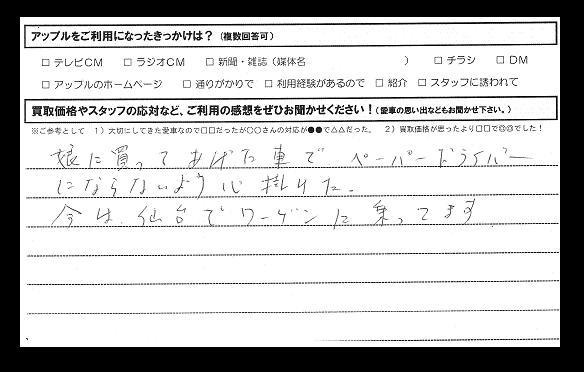 アップルをご利用になったきっかけは？（複数回答可）
□ テレビCM　□ ラジオCM　□ 新聞・雑誌（媒体名　　　　　　　　）　□ チラシ　□ DM
□ アップルのホームページ　□ 通りがかりで　□ 利用経験があるので　□ 紹介　□ スタッフに誘われて
買取価格やスタッフの応対など、ご利用の感想をぜひお聞かせください！（愛車の思い出などもお聞かせ下さい。）
※ご参考として　1）大切にしてきた愛車なので□□だったが○○さんの対応が●●で△△だった。　2）買取価格が思ったより□□で◎◎でした！
娘に買ってあげた車で ペーパードライバー
にならないよう心掛けた。
今は、仙台でワーゲンに乗ってます